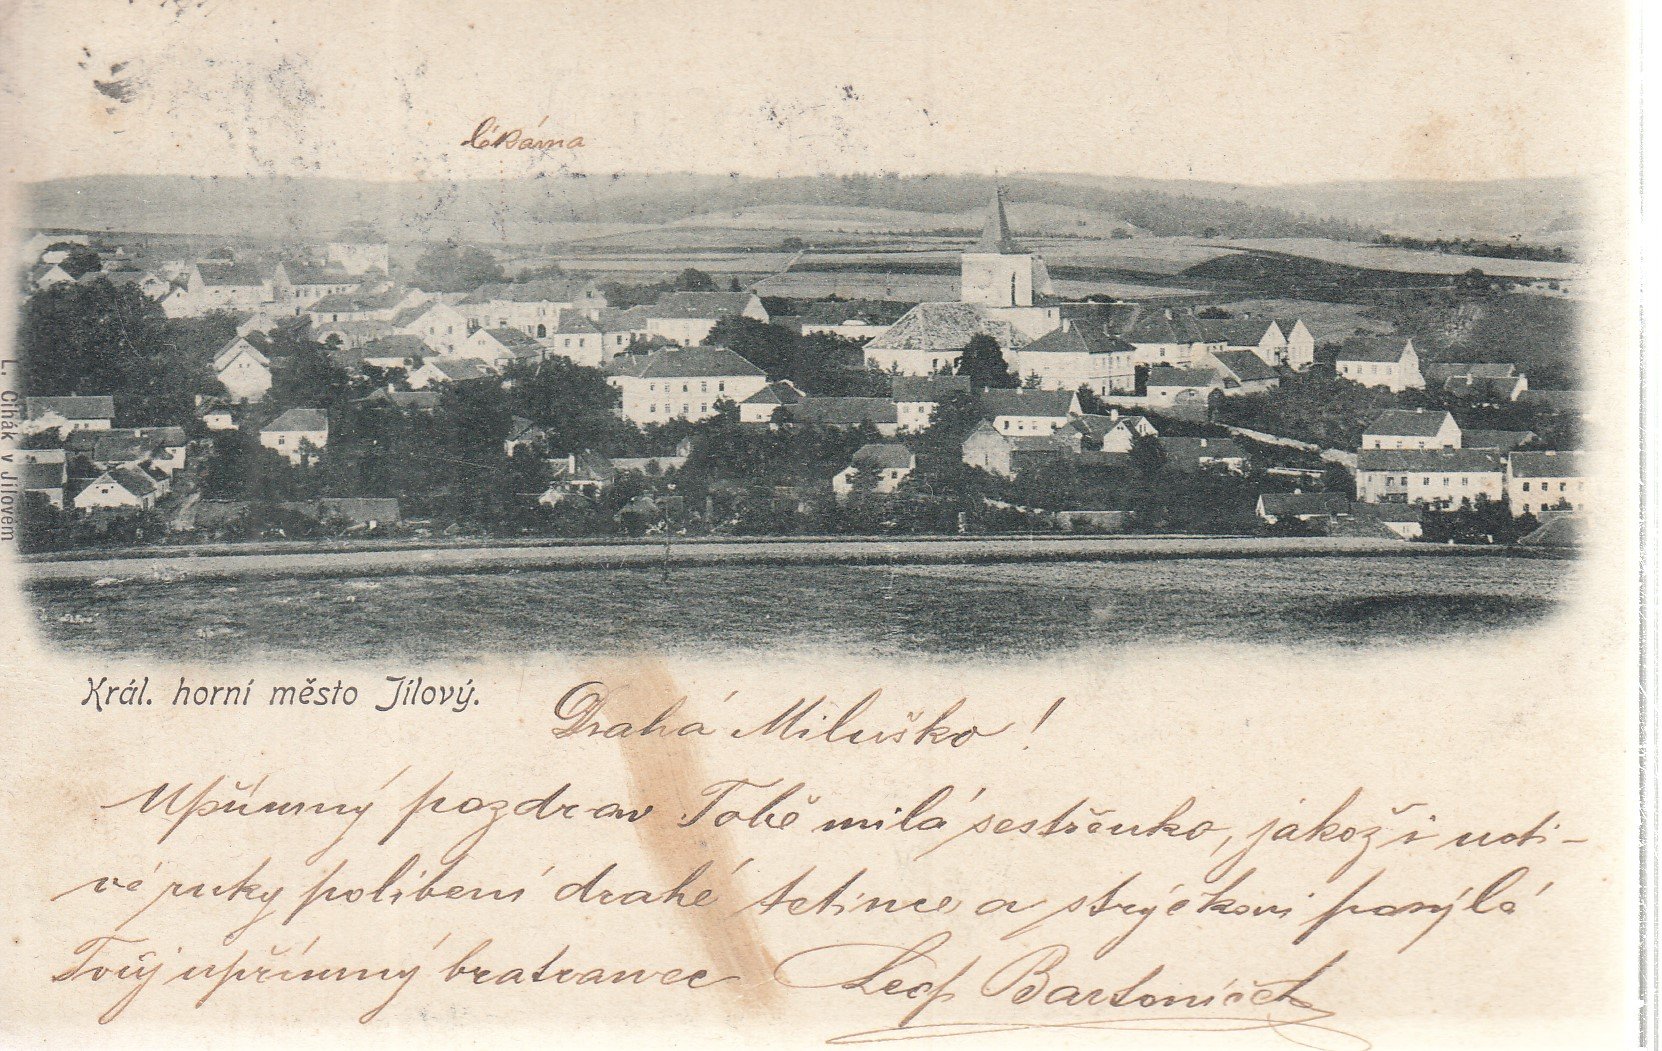 lékárna
L. Olňák v Jílovém
Král. horní město Jílový.
Drahá Miluško!
Upřímný pozdrav Tobě milá sestřenko, jakož i ucti-
vé ruky políbení drahé tetince a strýčkovi posýlá
Tvůj upřímný bratranec Leop Bartoníček